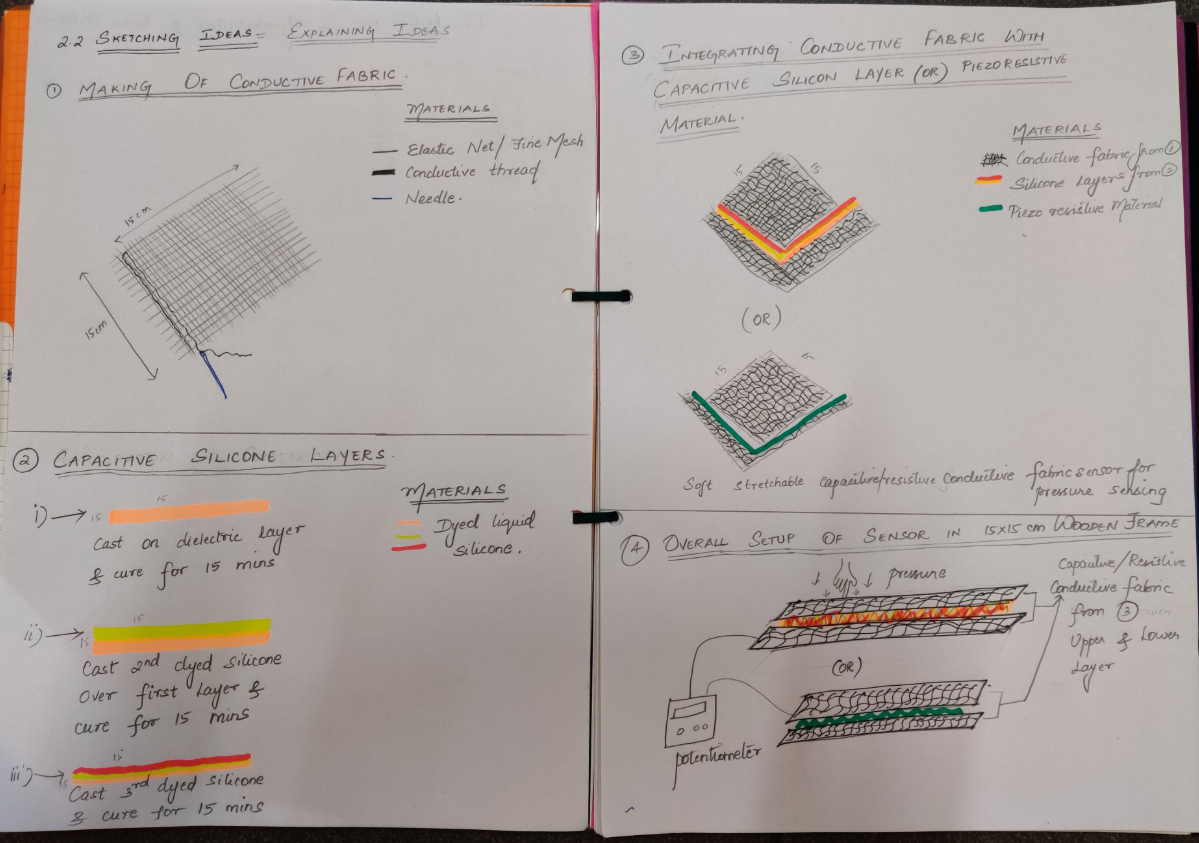 2.2 SKETCHING IDEAS = EXPLAINING IDEAS
① MAKING OF CONDUCTIVE FABRIC.
MATERIALS
Elastic Net/Fine Mesh
Conductive thread
Needle.
15cm
15cm
② CAPACITIVE SILICONE LAYERS.
MATERIALS
Dyed liquid
silicone.
i) 15
15
Cast on dielectric layer
& cure for 15 mins
ii) 15
15
Cast 2nd dyed silicone
Over first layer &
cure for 15 mins
iii) 15
15
Cast 3rd dyed silicone
& cure for 15 mins
③ INTEGRATING CONDUCTIVE FABRIC WITH
CAPACITIVE SILICON LAYER (OR) PIEZORESISTIVE
MATERIAL.
MATERIALS
Conductive fabric from ①
Silicone Layers from ②
Piezo resistive Material
15 15
(OR)
15
Soft stretchable capacitive/resistive conductive fabric sensor for
pressure sensing
④ OVERALL SETUP OF SENSOR IN 15X15 cm WOODEN FRAME
pressure
Capacitive/Resistive
Conductive fabric
from ③
Upper & Lower
Layer
(OR)
potentiometer